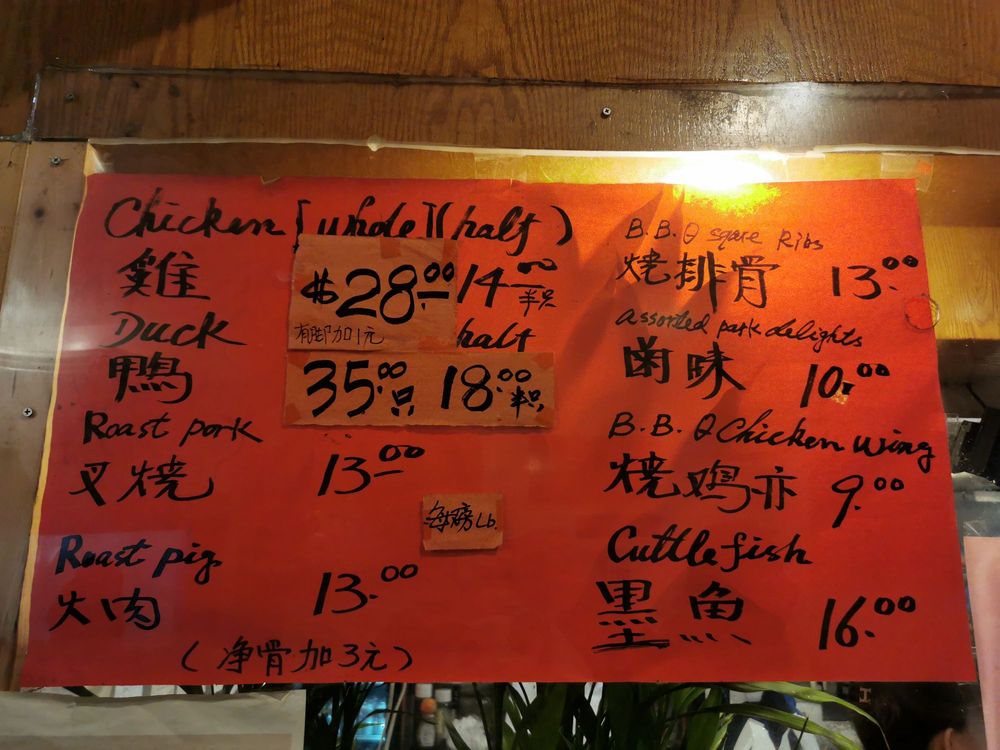 Chicken [whole] (half)
雞 $28.00 14.00 半只
有脚加1元
Duck half
鴨 35.00只 18.00半只
Roast pork
叉燒 13.00
每磅Lb.
Roast pig
火肉 13.00
(净骨加3元)
B.B.Q sqare Ribs
燒排骨 13.00
assorted park delights
卤味 10.00
B.B.Q Chicken wing
燒鸡亦 9.00
Cuttlefish
墨魚 16.00